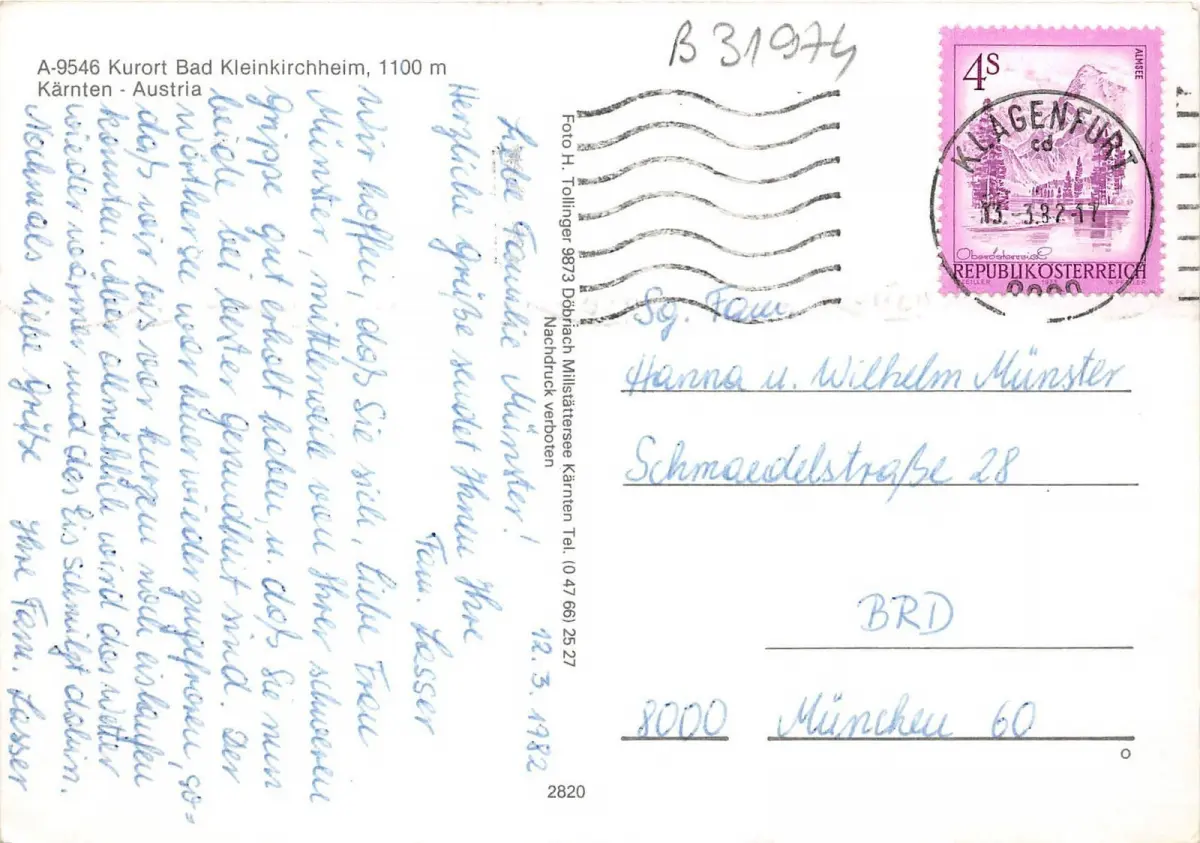 B 31974
A-9546 Kurort Bad Kleinkirchheim, 1100 m
Kärnten - Austria
12.3.1982
Liebe Familie Münster!
Herzliche Grüße sendet Ihnen Ihre
Fam. Lasser
Wir hoffen, daß Sie sich, liebe Frau
Münster, mittlerweile von Ihrer schweren
Grippe gut erholt haben, u. daß Sie nun
beide bei bester Gesundheit sind. Der
Wörthersee war heuer wieder zugefroren, so=
daß wir bis vor kurzem noch eislaufen
konnten. Aber allmählich wird das Wetter
wieder wärmer und das Eis schmilzt dahin.
Nochmals liebe Grüße Ihre Fam. Lasser
Foto H. Tollinger 9873 Döbriach Millstättersee Kärnten Tel. (0 47 66) 25 27
Nachdruck verboten
2820
4S
ALMSEE
KLAGENFURT
cd
13.-3.82-17
Oberösterreich
REPUBLIK ÖSTERREICH
Sg. Fam.
Hanna u. Wilhelm Münster
Schmaedelstraße 28
BRD
8000 München 60